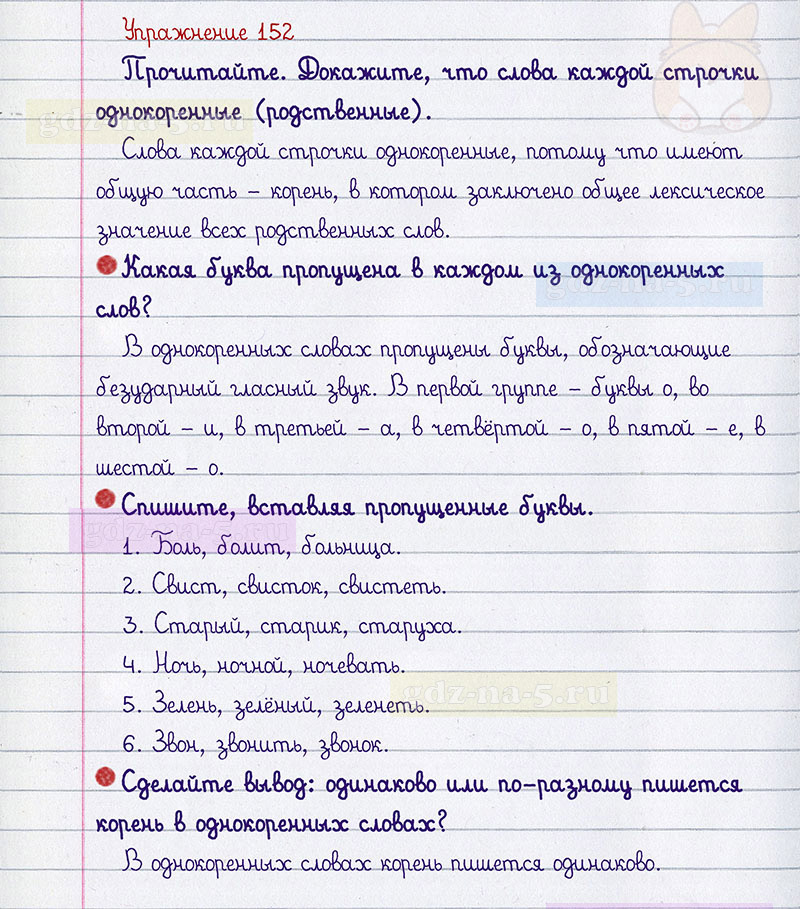 Упражнение 152
Прочитайте. Докажите, что слова каждой строчки
однокоренные (родственные).
gdz-na-5.ru
Слова каждой строчки однокоренные, потому что имеют
общую часть – корень, в котором заключено общее лексическое
значение всех родственных слов.
Какая буква пропущена в каждом из однокоренных
gdz-na-5.ru
слов?
В однокоренных словах пропущены буквы, обозначающие
безударный гласный звук. В первой группе – буквы о, во
второй – и, в третьей – а, в четвёртой – о, в пятой – е, в
шестой – о.
Спишите, вставляя пропущенные буквы.
gdz-na-5.ru
1. Боль, болит, больница.
2. Свист, свисток, свистеть.
3. Старый, старик, старуха.
4. Ночь, ночной, ночевать.
gdz-na-5.ru
5. Зелень, зелёный, зеленеть.
6. Звон, звонить, звонок.
Сделайте вывод: одинаково или по-разному пишется
корень в однокоренных словах?
В однокоренных словах корень пишется одинаково.